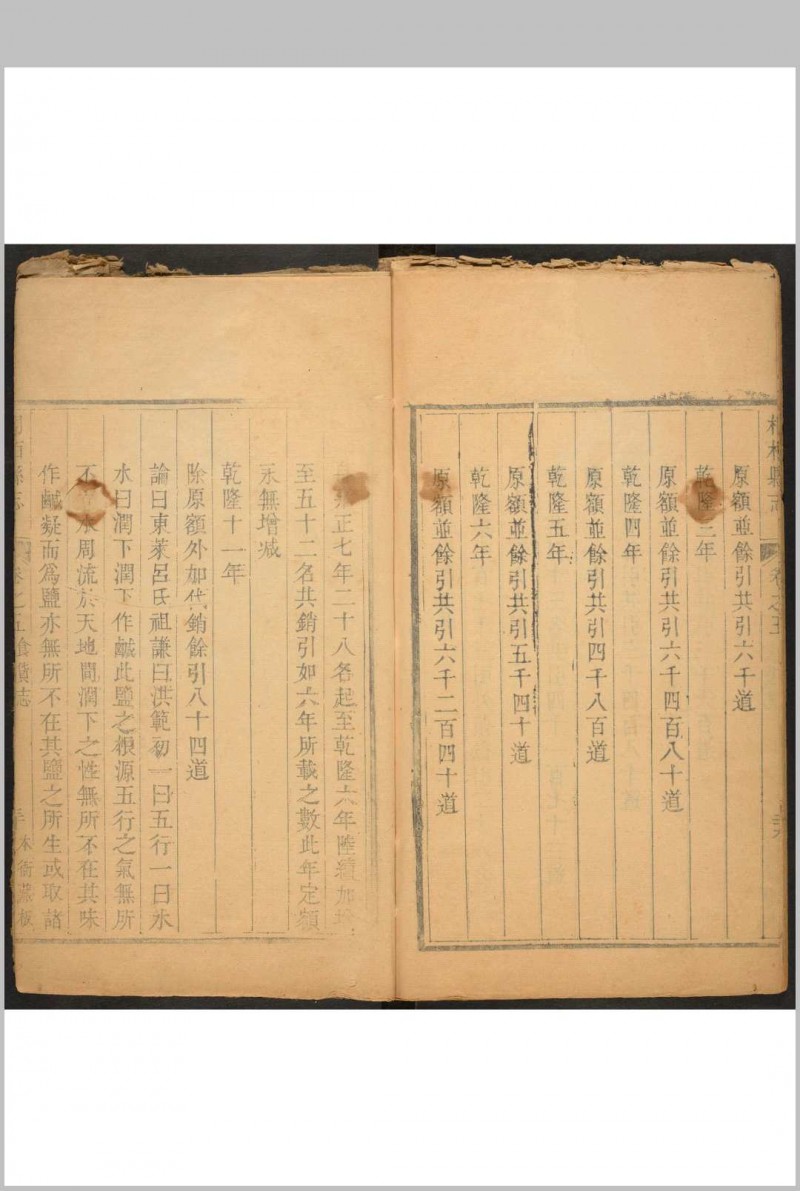 縣志
卷之五
原額並餘引共引六千道
乾隆三年
原額並餘引共引六千四百八十道
乾隆四年
原額並餘引共引四千八百道
乾隆五年
原額並餘引共引五千四十道
乾隆六年
原額並餘引共引六千二百四十道
正七年二十八名起至乾隆六年陸續加增
至五十二名共銷引如六年所載之數此年定額
永無增減
乾隆十一年
除原額外加代銷餘引八十四道
論曰東萊呂氏祖謙曰洪範初一曰五行一曰水
水曰潤下潤下作鹹此鹽之根源五行之氣無所
不水周流於天地間潤下之性無所不在其味
作鹹凝而為鹽亦無所不在其鹽之所生或取諸
縣志
卷之五食貨志
本衙藏板